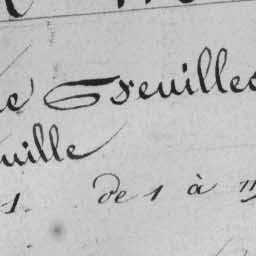 e Feuilles
uille
1. de 1 à